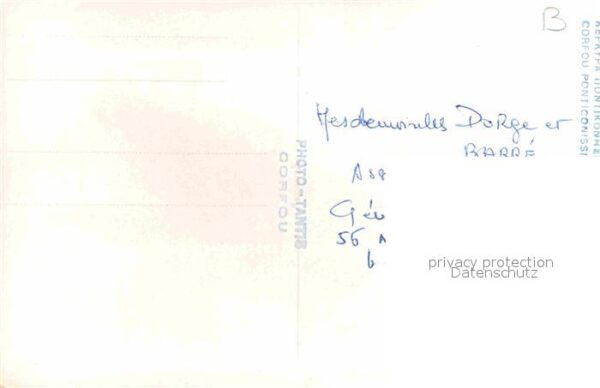 B
ΚΕΡΚΥΡΑ ΠΟΝΤΙΚΟΝΗΣΙ
CORFOU PONTICONISSI
Mesdemoiselles DORGE et
BARBÉ
PHOTO-TANTIS
CORFOU
56
privacy protection
Datenschutz